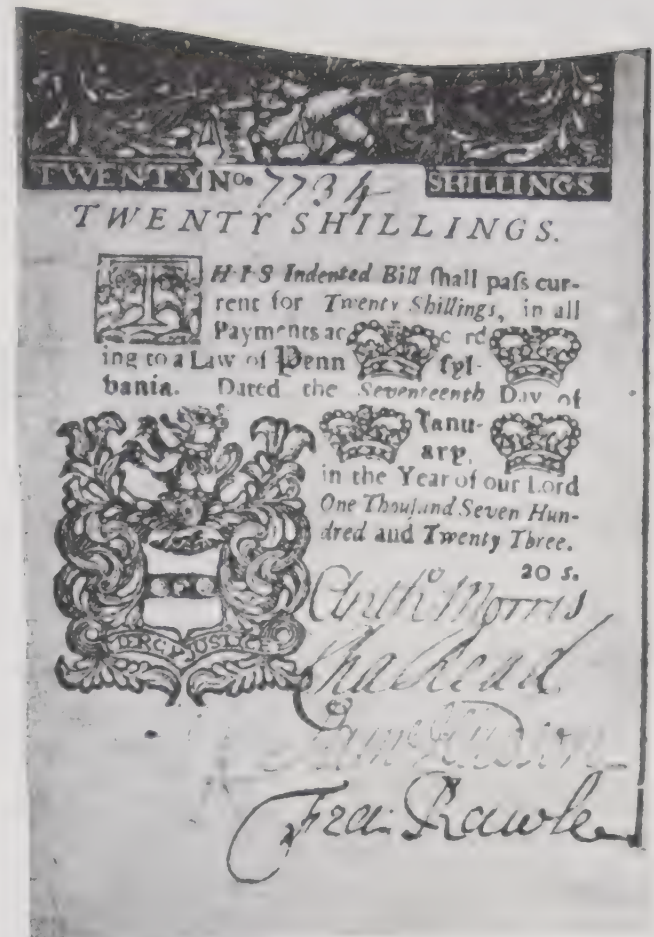 TWENTY No. 7734 SHILLINGS
TWENTY SHILLINGS.
THIS Indented Bill ſhall paſs cur-
rent for Twenty Shillings, in all
Payments ac c rd
ing to a Law of Penn ſyl-
vania. Dated the Seventeenth Day of
Janu-
ary,
in the Year of our Lord
One Thouſand Seven Hun-
dred and Twenty Three.
20 s.
MERCY JUSTICE
Anthº Morris
Cha Read
Fra: Rawle